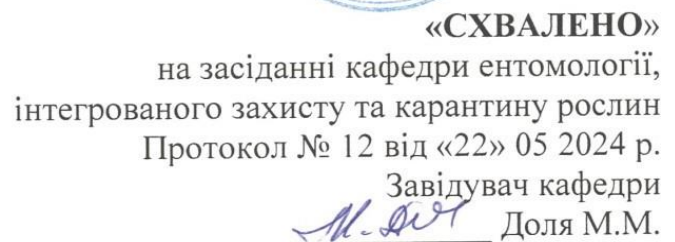 «СХВАЛЕНО»
на засіданні кафедри ентомології,
інтегрованого захисту та карантину рослин
Протокол № 12 від «22» 05 2024 р.
Завідувач кафедри
Доля М.М.